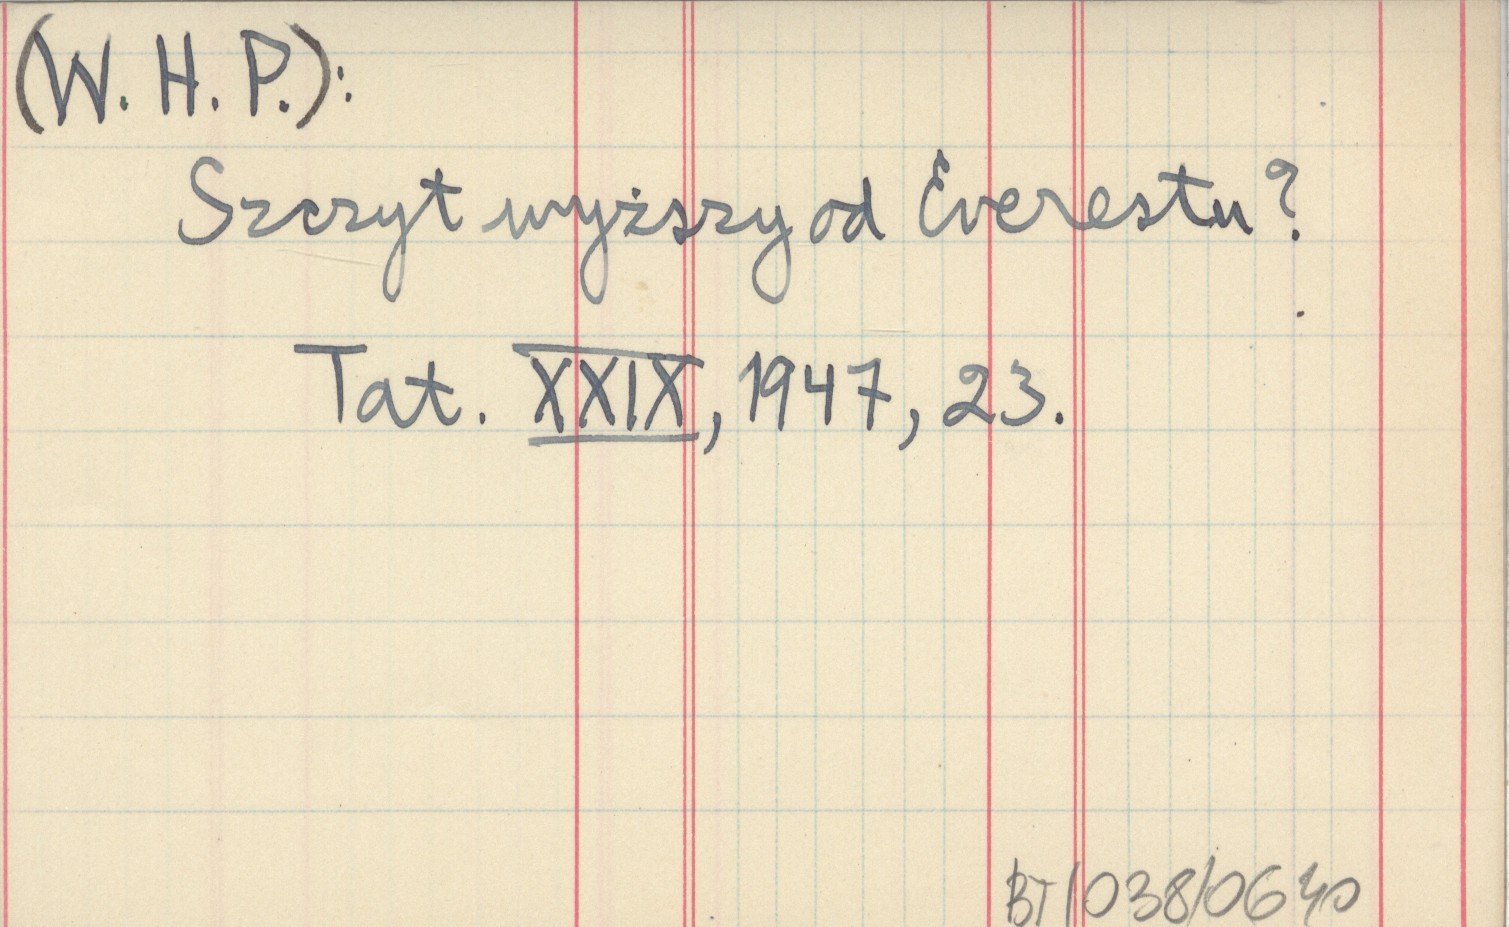 (W. H. P.):
Szczyt wyższy od Everestu?
Tat. XXIX, 1947, 23.
BT/038/0640